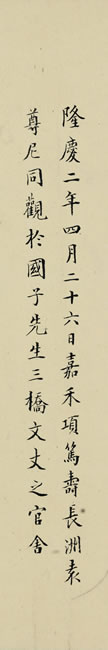 隆慶二年四月二十六日嘉禾項篤壽長洲袁
尊尼同觀於國子先生三橋文丈之官舍